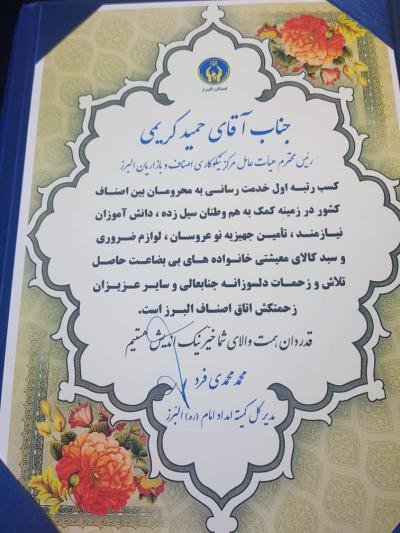 استان البرز
جناب آقای حمید کریمی
رئیس محترم هیأت عامل مرکز نیکوکاری اصناف و بازاریان البرز
کسب رتبه اول خدمت رسانی به محرومان بین اصناف
کشور در زمینه کمک به هم وطنان سیل زده ، دانش آموزان
نیازمند ، تأمین جهیزیه نو عروسان ، لوازم ضروری
و سبد کالای معیشتی خانواده های بی بضاعت حاصل
تلاش و زحمات دلسوزانه جنابعالی و سایر عزیزان
زحمتکش اتاق اصناف البرز است.
قدردان همت والای شما خیر نیک اندیش هستیم
محمد محمدی فرد
مدیر کل کمیته امداد امام (ره) البرز